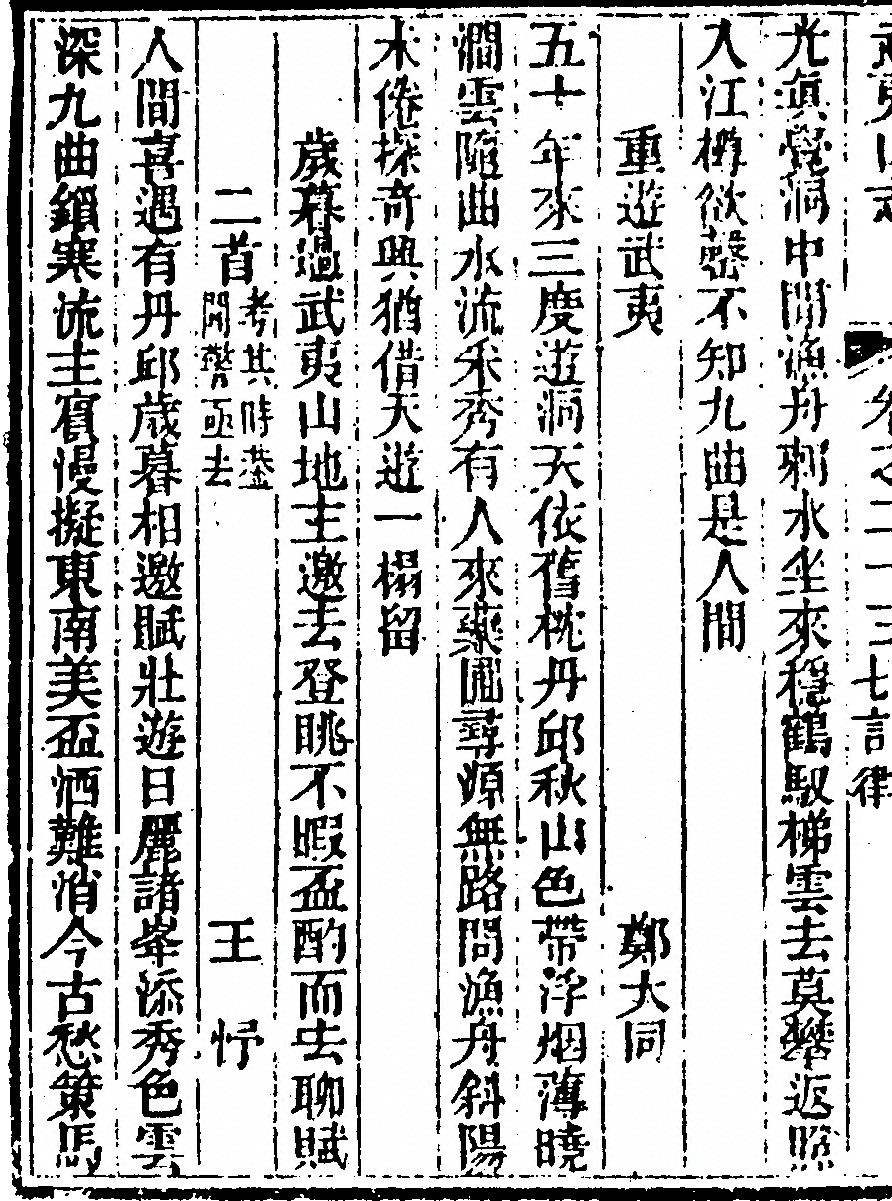 武夷山志 卷之二十三七言律
光眞覺洞中閒漁舟刺水坐來穩鶴馭梯雲去莫攀返照
入江樽欲罄不知九曲是人間
重遊武夷 鄭大同
五十年來三度遊洞天依舊枕丹邱秋山色帶浮烟薄曉
澗雲隨曲水流采秀有人來藥圃尋源無路問漁舟斜陽
未倦探奇興猶借天遊一榻留
歲暮過武夷山地主邀去登眺不暇盃酌而去聊賦
二首 考其時蓋閩警亟去 王忬
人間喜遇有丹邱歲暮相邀賦壯遊日麗諸峯添秀色雲
深九曲鎖寒流主賓漫擬東南美盃酒難消今古愁策馬